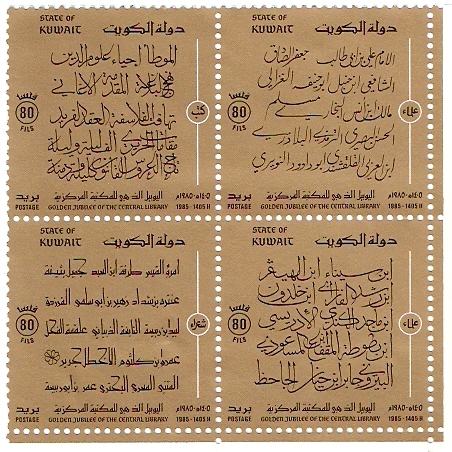 STATE OF
KUWAIT دولة الكويت
الموطأ إحياء علوم الدين
نهج البلاغة المقدمة الأغاني
تهافت الفلاسفة العقد الفريد
مقامات الحريري ألف ليلة وليلة
تاج العروس القانون كليلة ودمنة
فلسا
80
FILS
كتب
اليوبيل الذهبي للمكتبة المركزية ١٤٠٥هـ ١٩٨٥م
بريد
POSTAGE GOLDEN JUBILEE OF THE CENTRAL LIBRARY 1985-1405 H
STATE OF
KUWAIT دولة الكويت
الامام علي بن ابي طالب جعفر الصادق
الشافعي ابن حنبل ابو حنيفة الغزالي
مالك بن أنس البخاري مسلم
الحسن البصري الترمذي البلاذري
ابن العربي القلقشندي ابو داوود النويري
فلسا
80
FILS
علماء
اليوبيل الذهبي للمكتبة المركزية ١٤٠٥هـ ١٩٨٥م
بريد
POSTAGE GOLDEN JUBILEE OF THE CENTRAL LIBRARY 1985-1405 H
STATE OF
KUWAIT دولة الكويت
امرؤ القيس طرفة ابن العبد جميل بثينة
عنترة بن شداد زهير بن أبي سلمى الفرزدق
لبيد بن ربيعة النابغة الذبياني علقمة الفحل
عمرو بن كلثوم الأخطل جرير
المتنبي المعري البحتري عمر بن أبي ربيعة
فلسا
80
FILS
شعراء
اليوبيل الذهبي للمكتبة المركزية ١٤٠٥هـ ١٩٨٥م
بريد
POSTAGE GOLDEN JUBILEE OF THE CENTRAL LIBRARY 1985-1405 H
STATE OF
KUWAIT دولة الكويت
ابن سيناء ابن الهيثم
ابن رشد الفارابي ابن خلدون
ابن ماجد الكندي الإدريسي
ابن بطوطة المقفع المسعودي
البيروني جابر ابن حيان الجاحظ
فلسا
80
FILS
علماء
اليوبيل الذهبي للمكتبة المركزية ١٤٠٥هـ ١٩٨٥م
بريد
POSTAGE GOLDEN JUBILEE OF THE CENTRAL LIBRARY 1985-1405 H